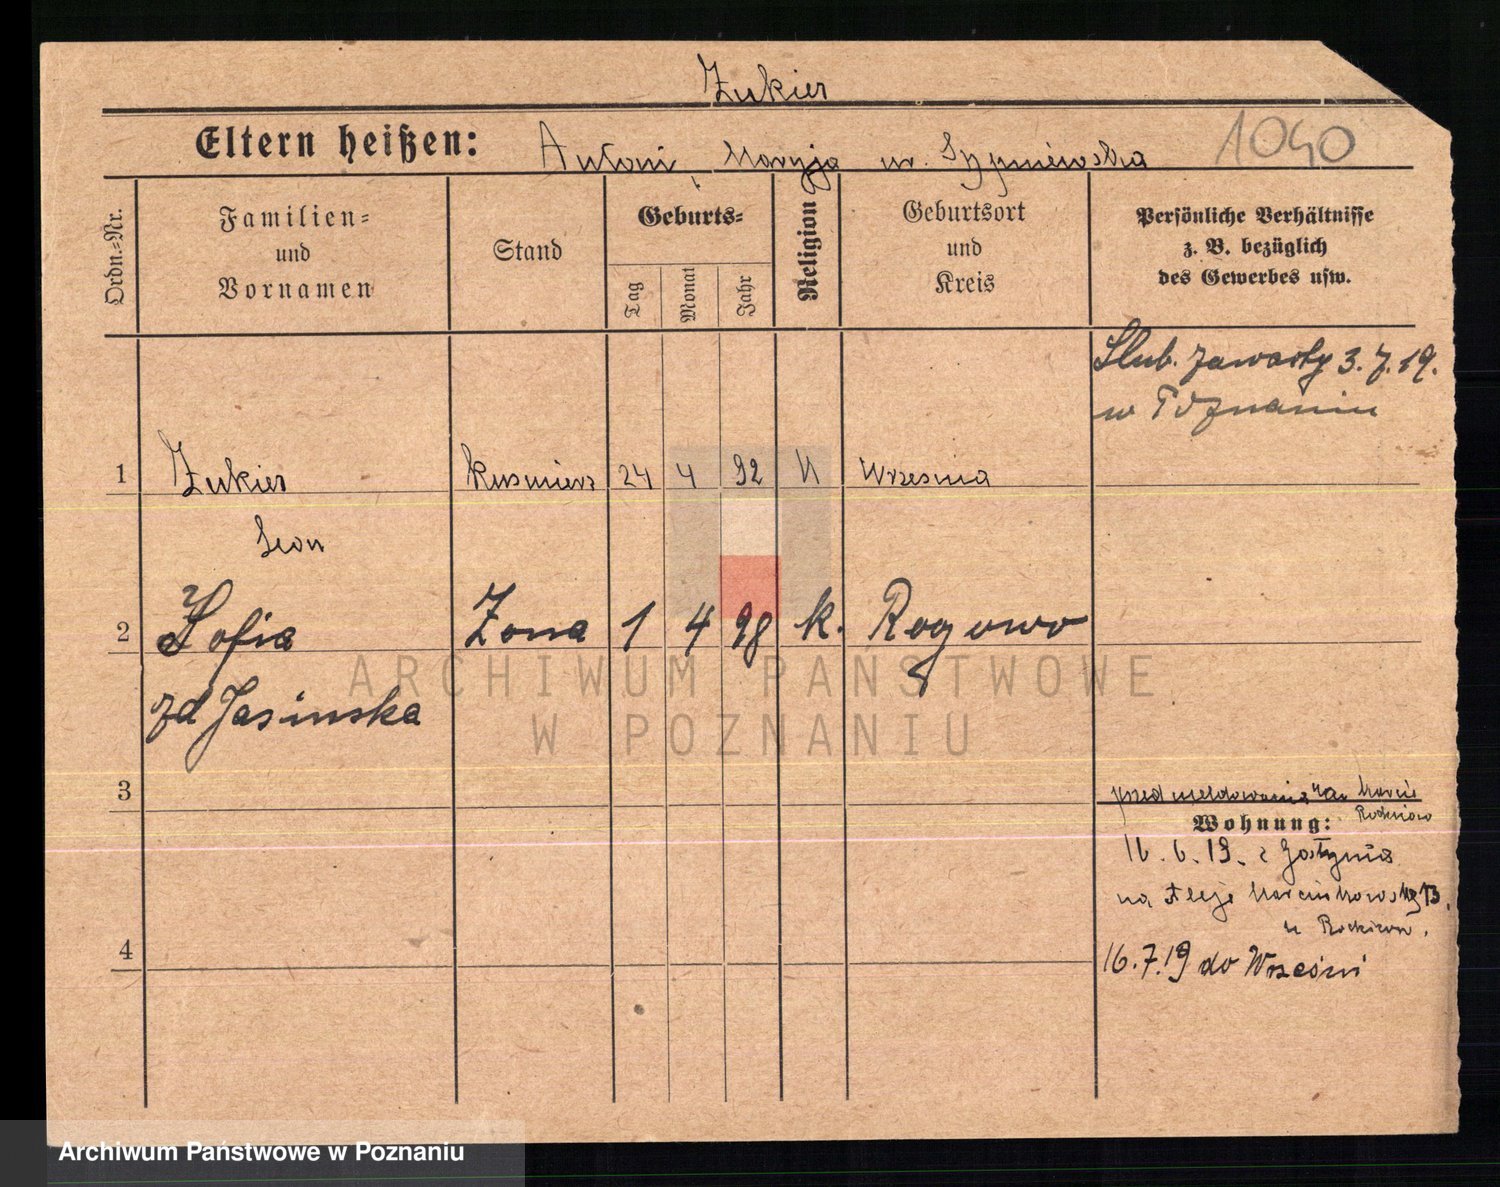 Zukier
Eltern heißen: Antoni, Maryja ur. Sypniewska 1040
Ordn.=Nr.
Familien=
und
Vornamen
Stand
Geburts=
Tag
Monat
Jahr
Religion
Geburtsort
und
Kreis
Persönliche Verhältnisse
z. B. bezüglich
des Gewerbes usw.
Slub. zawarty 3.7.19.
w Poznaniu
1 Zukier Kusmierz 24 4 92 k Wrzesnia
Leon
2 Zofia Zona 1 4 98 k. Rogowo
zd Jasinska
3
4
Wohnung:
16.6.19. z Gostynia
na Aleje Marcinkowskig 13.
16.7.19 do Wrześni
ARCHIWUM PAŃSTWOWE
W POZNANIU
Archiwum Państwowe w Poznaniu